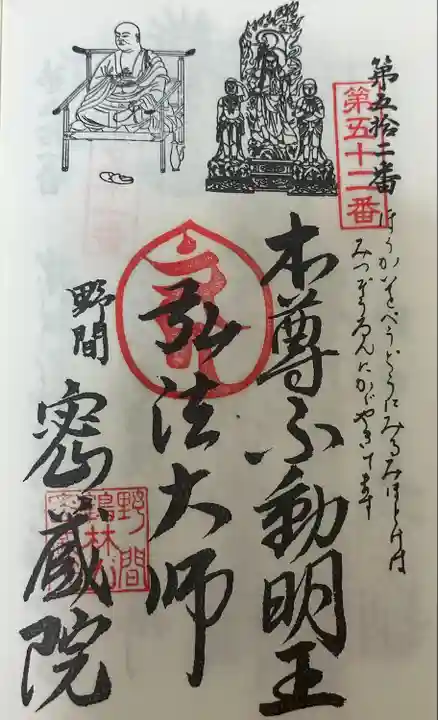 第五拾二番
第五十二番
ほうかいをべうどうにみるみほとけは
みつごんにかがやきて
本尊不動明王
弘法大師
野間
密蔵院
野間
鶴林山
密蔵院